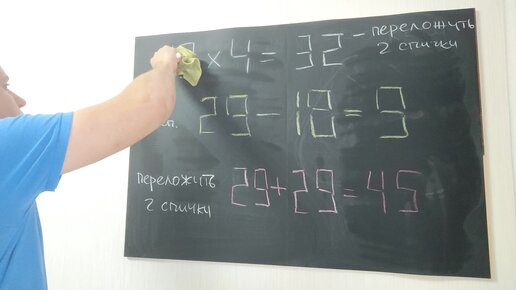 × 4 = 32 – переложить
2 спички
29 – 18 = 9
переложить 29 + 29 = 45
2 спички